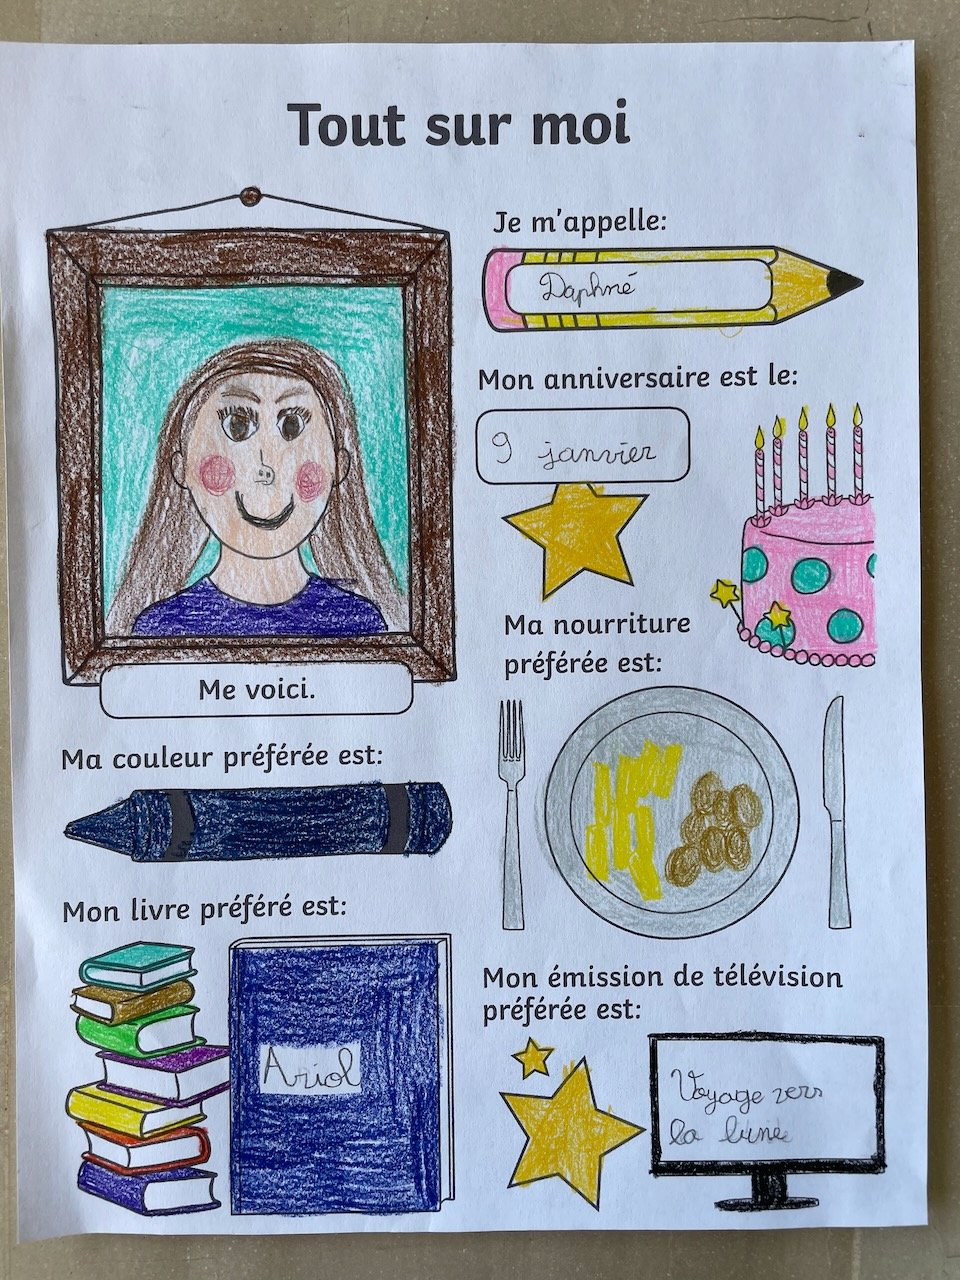 Tout sur moi
Je m'appelle:
Daphné
Mon anniversaire est le:
9 janvier
Ma nourriture
préférée est:
Me voici.
Ma couleur préférée est:
Mon livre préféré est:
Ariol
Mon émission de télévision
préférée est:
Voyage vers
la lune